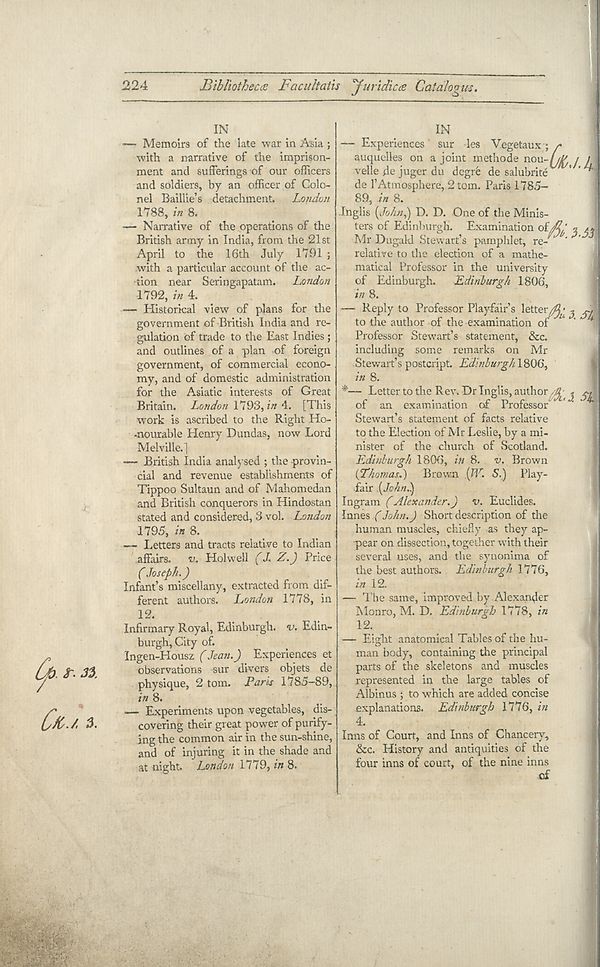 224 Bibliothecæ Facultatis Juridicæ Catalogus.
IN
— Memoirs of the late war in Asia ;
with a narrative of the imprison-
ment and sufferings of our officers
and soldiers, by an officer of Colo-
nel Baillie's detachment. London
1788, in 8.
— Narrative of the operations of the
British army in India, from the 21st
April to the 16th July 1791 ;
with a particular account of the ac-
tion near Seringapatam. London
1792, in 4.
— Historical view of plans for the
government of British India and re-
gulation of trade to the East Indies ;
and outlines of a plan of foreign
government, of commercial econo-
my, and of domestic administration
for the Asiatic interests of Great
Britain. London 1793, in 4. [This
work is ascribed to the Right Ho-
nourable Henry Dundas, now Lord
Melville.]
— British India analysed ; the provin-
cial and revenue establishments of
Tippoo Sultaun and of Mahomedan
and British conquerors in Hindostan
stated and considered, 3 vol. London
1795, in 8.
— Letters and tracts relative to Indian
affairs. v. Holwell (J. Z.) Price
(Joseph.)
Infant's miscellany, extracted from dif-
ferent authors. London 1778, in
12.
Infirmary Royal, Edinburgh. v. Edin-
burgh, City of.
Ingen-Housz (Jean.) Experiences et
observations sur divers objets de
physique, 2 tom. Paris 1785-89,
in 8.
— Experiments upon vegetables, dis-
covering their great power of purify-
ing the common air in the sun-shine,
and of injuring it in the shade and
at night. London 1779, in 8.
8. 33.
3.
IN
— Experiences sur les Vegetaux ;
auquelles on a joint methode nou-
velle de juger du degré de salubrité
de l'Atmosphere, 2 tom. Paris 1785-
89, in 8.
Inglis (John,) D. D. One of the Minis-
ters of Edinburgh. Examination of
Mr Dugald Stewart's pamphlet, re-
relative to the election of a mathe-
matical Professor in the university
of Edinburgh. Edinburgh 1806,
in 8.
— Reply to Professor Playfair's letter
to the author of the examination of
Professor Stewart's statement, &c.
including some remarks on Mr
Stewart's postcript. Edinburgh 1806,
in 8.
*— Letter to the Rev. Dr Inglis, author
of an examination of Professor
Stewart's statement of facts relative
to the Election of Mr Leslie, by a mi-
nister of the church of Scotland.
Edinburgh 1806, in 8. v. Brown
(Thomas.) Brown (W. S.) Play-
fair (John.)
Ingram (Alexander.) v. Euclides.
Innes (John.) Short description of the
human muscles, chiefly as they ap-
pear on dissection, together with their
several uses, and the synonima of
the best authors. Edinburgh 1776,
in 12.
— The same, improved by Alexander
Monro, M. D. Edinburgh 1778, in
12.
— Eight anatomical Tables of the hu-
man body, containing the principal
parts of the skeletons and muscles
represented in the large tables of
Albinus ; to which are added concise
explanations. Edinburgh 1776, in
4.
Inns of Court, and Inns of Chancery,
&c. History and antiquities of the
four inns of court, of the nine inns
of